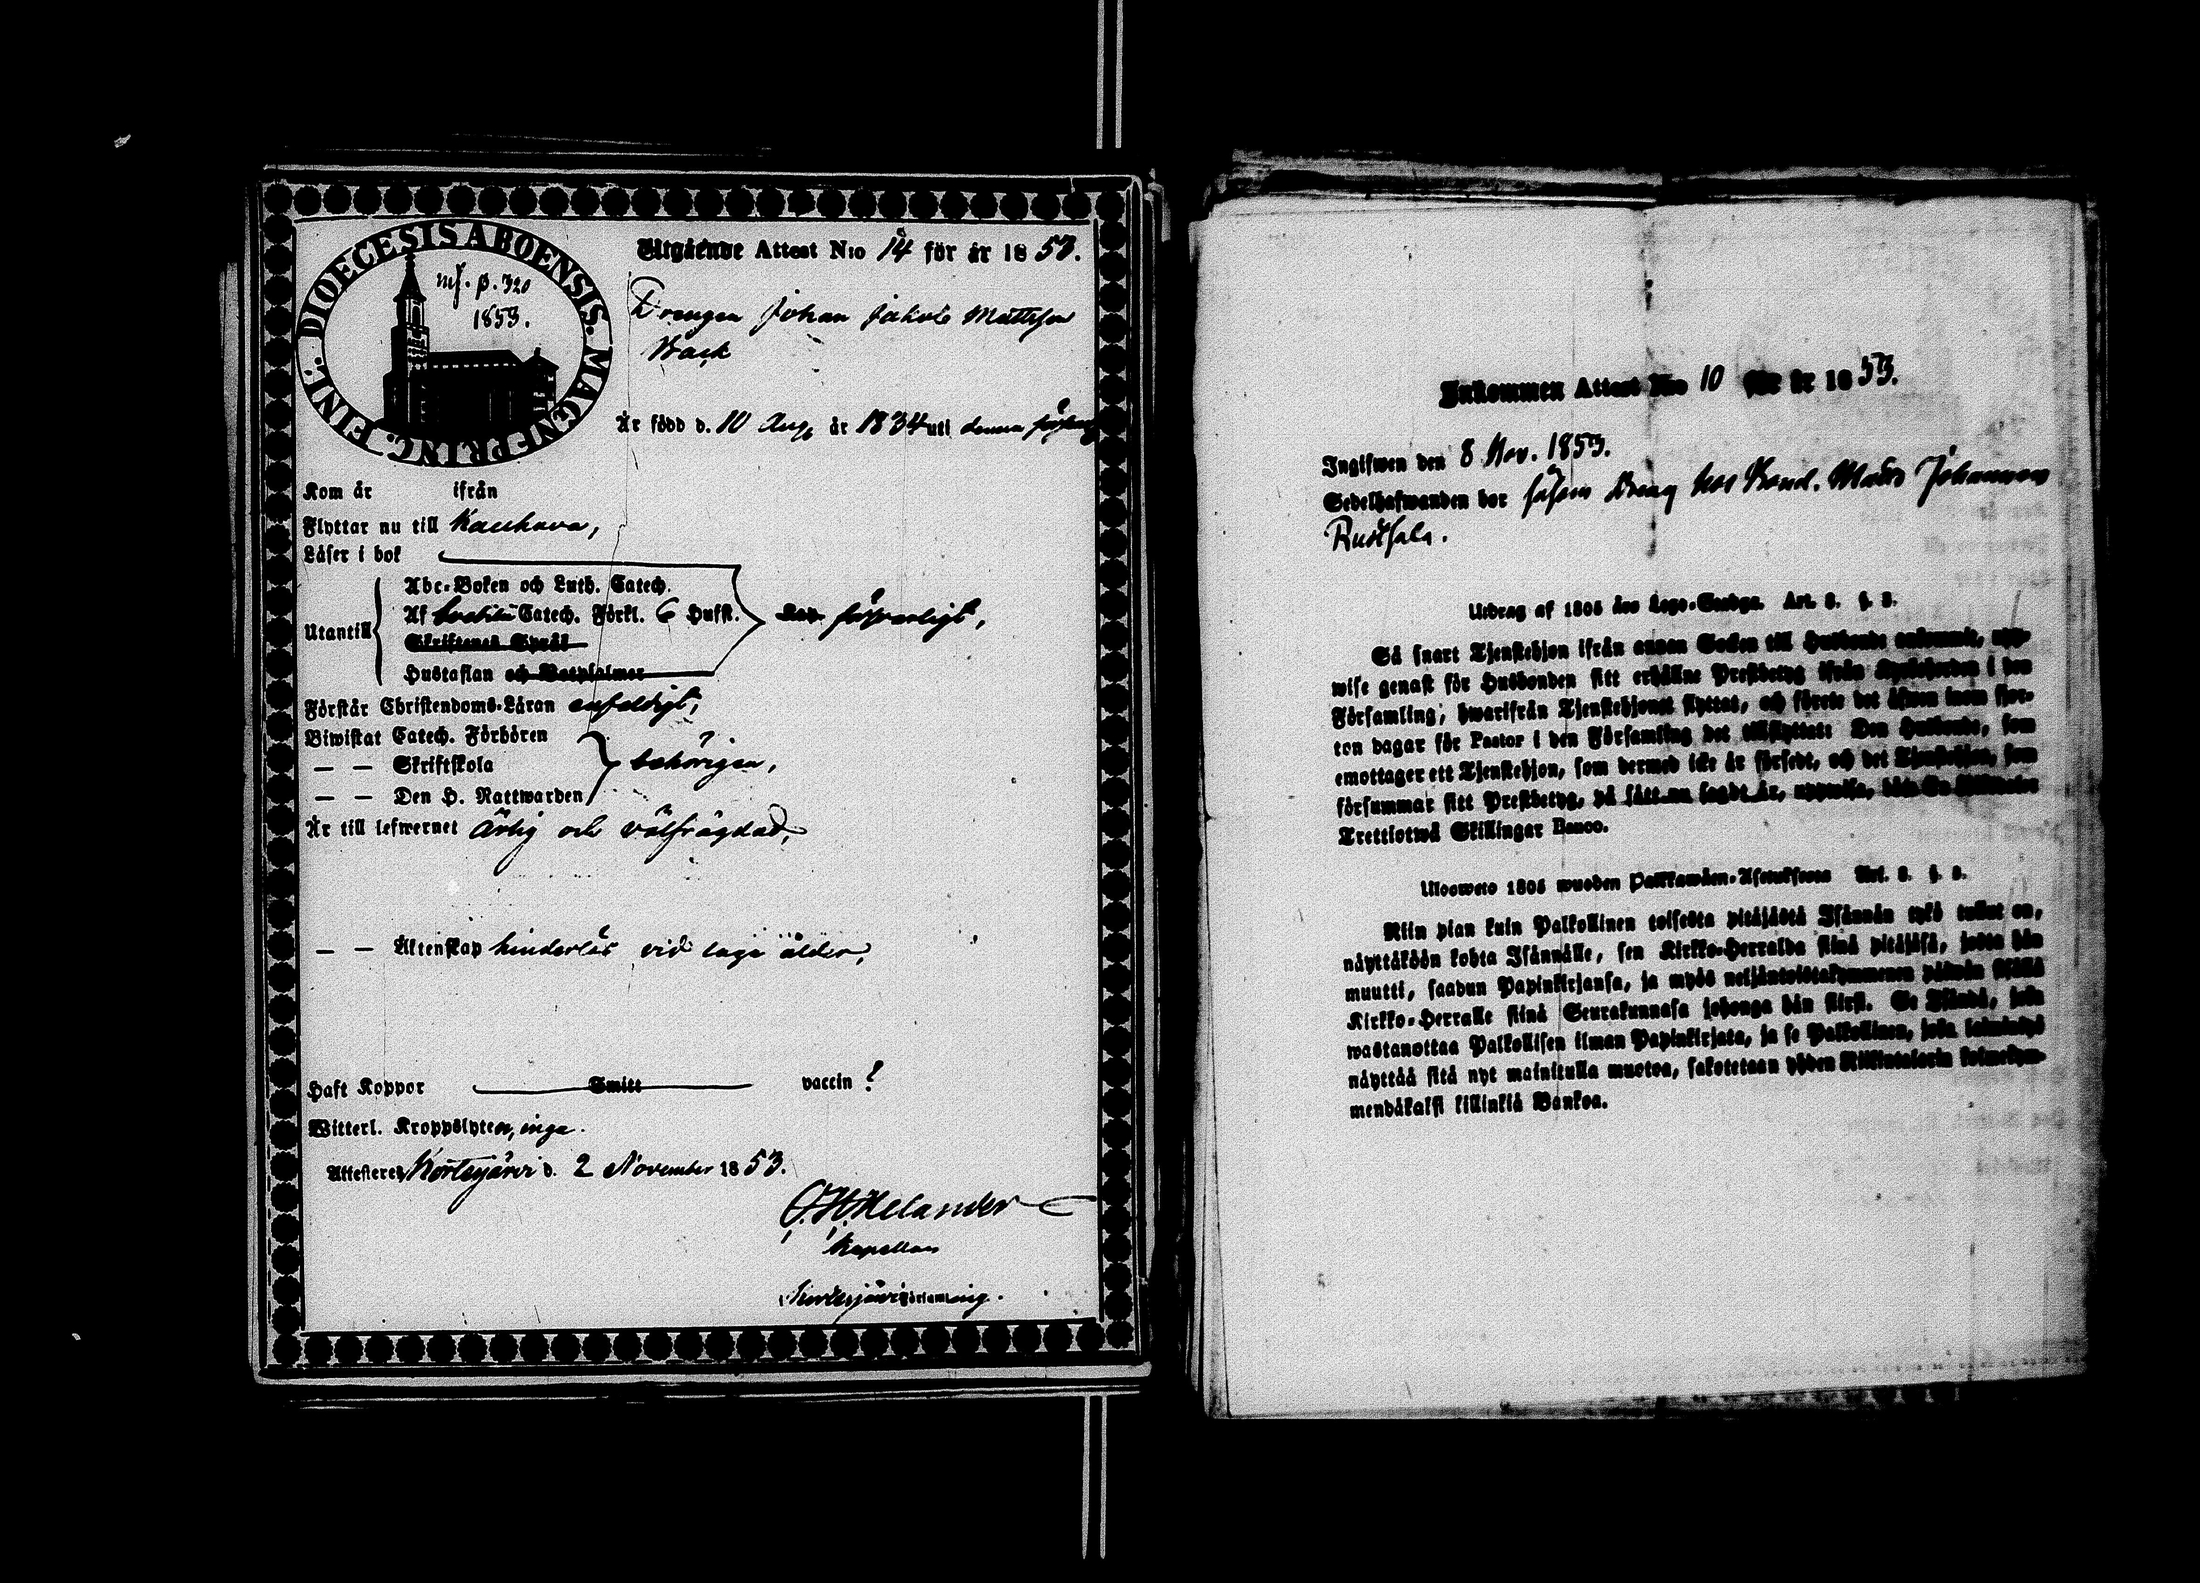 DIOECESIS ABOENSIS. MAGNI PRINC. FINL.
inf. p. 320
1853.
Utgående Attest N:o 14 för år 1853.
Drengen Johan Jakob Mattsson
Back
Är född d. 10 Aug. år 1834 uti denna förs
Kom år ifrån
Flyttar nu till Kauhava,
Läser i bok
Utantill
Abc-Boken och Luth. Catech.
Af Catech. Förkl. 6 Hufst. försvarligt,
Skriftenes Språk
Hustaflan och Botpsalmer
Förstår Christendoms-Läran enfaldigt,
Biwistat Catech. Förhören
— — Skriftskola behörigen,
— — Den H. Nattwarden
Är till lefwernet ärlig och välfrägdad,
— — Äktenskap hinderlös vid laga ålder,
Haft Koppor Smitt vaccin ?
Witterl. Kroppslyten, inga.
Attesterer, Kortesjärvi d. 2 November 1853.
Helander
Kapellan
Kortesjärvi Församling.
Inkommen Attest N:o 10 för år 1853.
Ingifwen den 8 Nov. 1853.
Sedelhafwanden bor såsom Dreng hos Bond. Matts Johansson
Ruotsala.
Utdrag af 1805 års Lego-Stadga. Art. 8. §. 3.
Så snart Tjenstehjon ifrån annan Socken till Husbonde ankommit, upp-
wise genast för Husbonden sitt erhållne Prestbetyg ifrån Kyrkoherden i den
Församling, hwarifrån Tjenstehjonet flyttat, och förete det äfwen inom fjor-
ton dagar för Pastor i den Församling det tillflyttat: Den Husbonde, som
emottager ett Tjenstehjon, som dermed icke är försedt, och det Tjenstehjon, som
försummar sitt Prestbetyg, på sätt nu sagdt är, uppwisa, böte En Riksdaler
Trettiotwå Skillingar Banco.
Ulosweto 1805 wuoden Palkkawäen-Asetuksesta Art. 8. §. 3.
Niin pian kuin Palkollinen toisesta pitäjästä Isännän tykö tullut on,
näyttäköön kohta Isännälle, sen Kirkko-Herralda siinä pitäjäsä, josta hän
muutti, saadun Papinkirjansa, ja myös neljäntoistakymmenen päiwän sisällä
Kirkko-Herralle siinä Seurakunnasa johonga hän siirsi. Se Isändä, joka
wastanottaa Palkollisen ilman Papinkirjata, ja se Palkollinen, joka laiminlyö
näyttää sitä nyt mainitulla muotoa, sakotetaan yhden Riikintalerin kolmekym-
mendäkaksi killinkiä Bankoa.